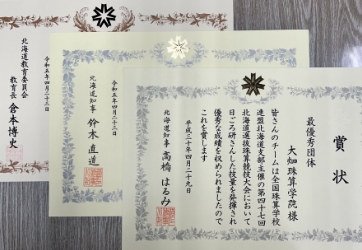 賞状
最優秀団体
大知珠算学院様
皆さんのチームは全国珠算学校
連盟北海道支部主催の第四十七回
北海道選抜珠算競技大会において
日ごろ研さんした技量を発揮され
優秀な成績を収められましたので
これを賞します
平成三十年四月二十九日
北海道知事 高橋はるみ
令和五年四月二十三日
北海道知事 鈴木直道
令和五年四月二十三日
北海道教育委員会
教育長 倉本博史